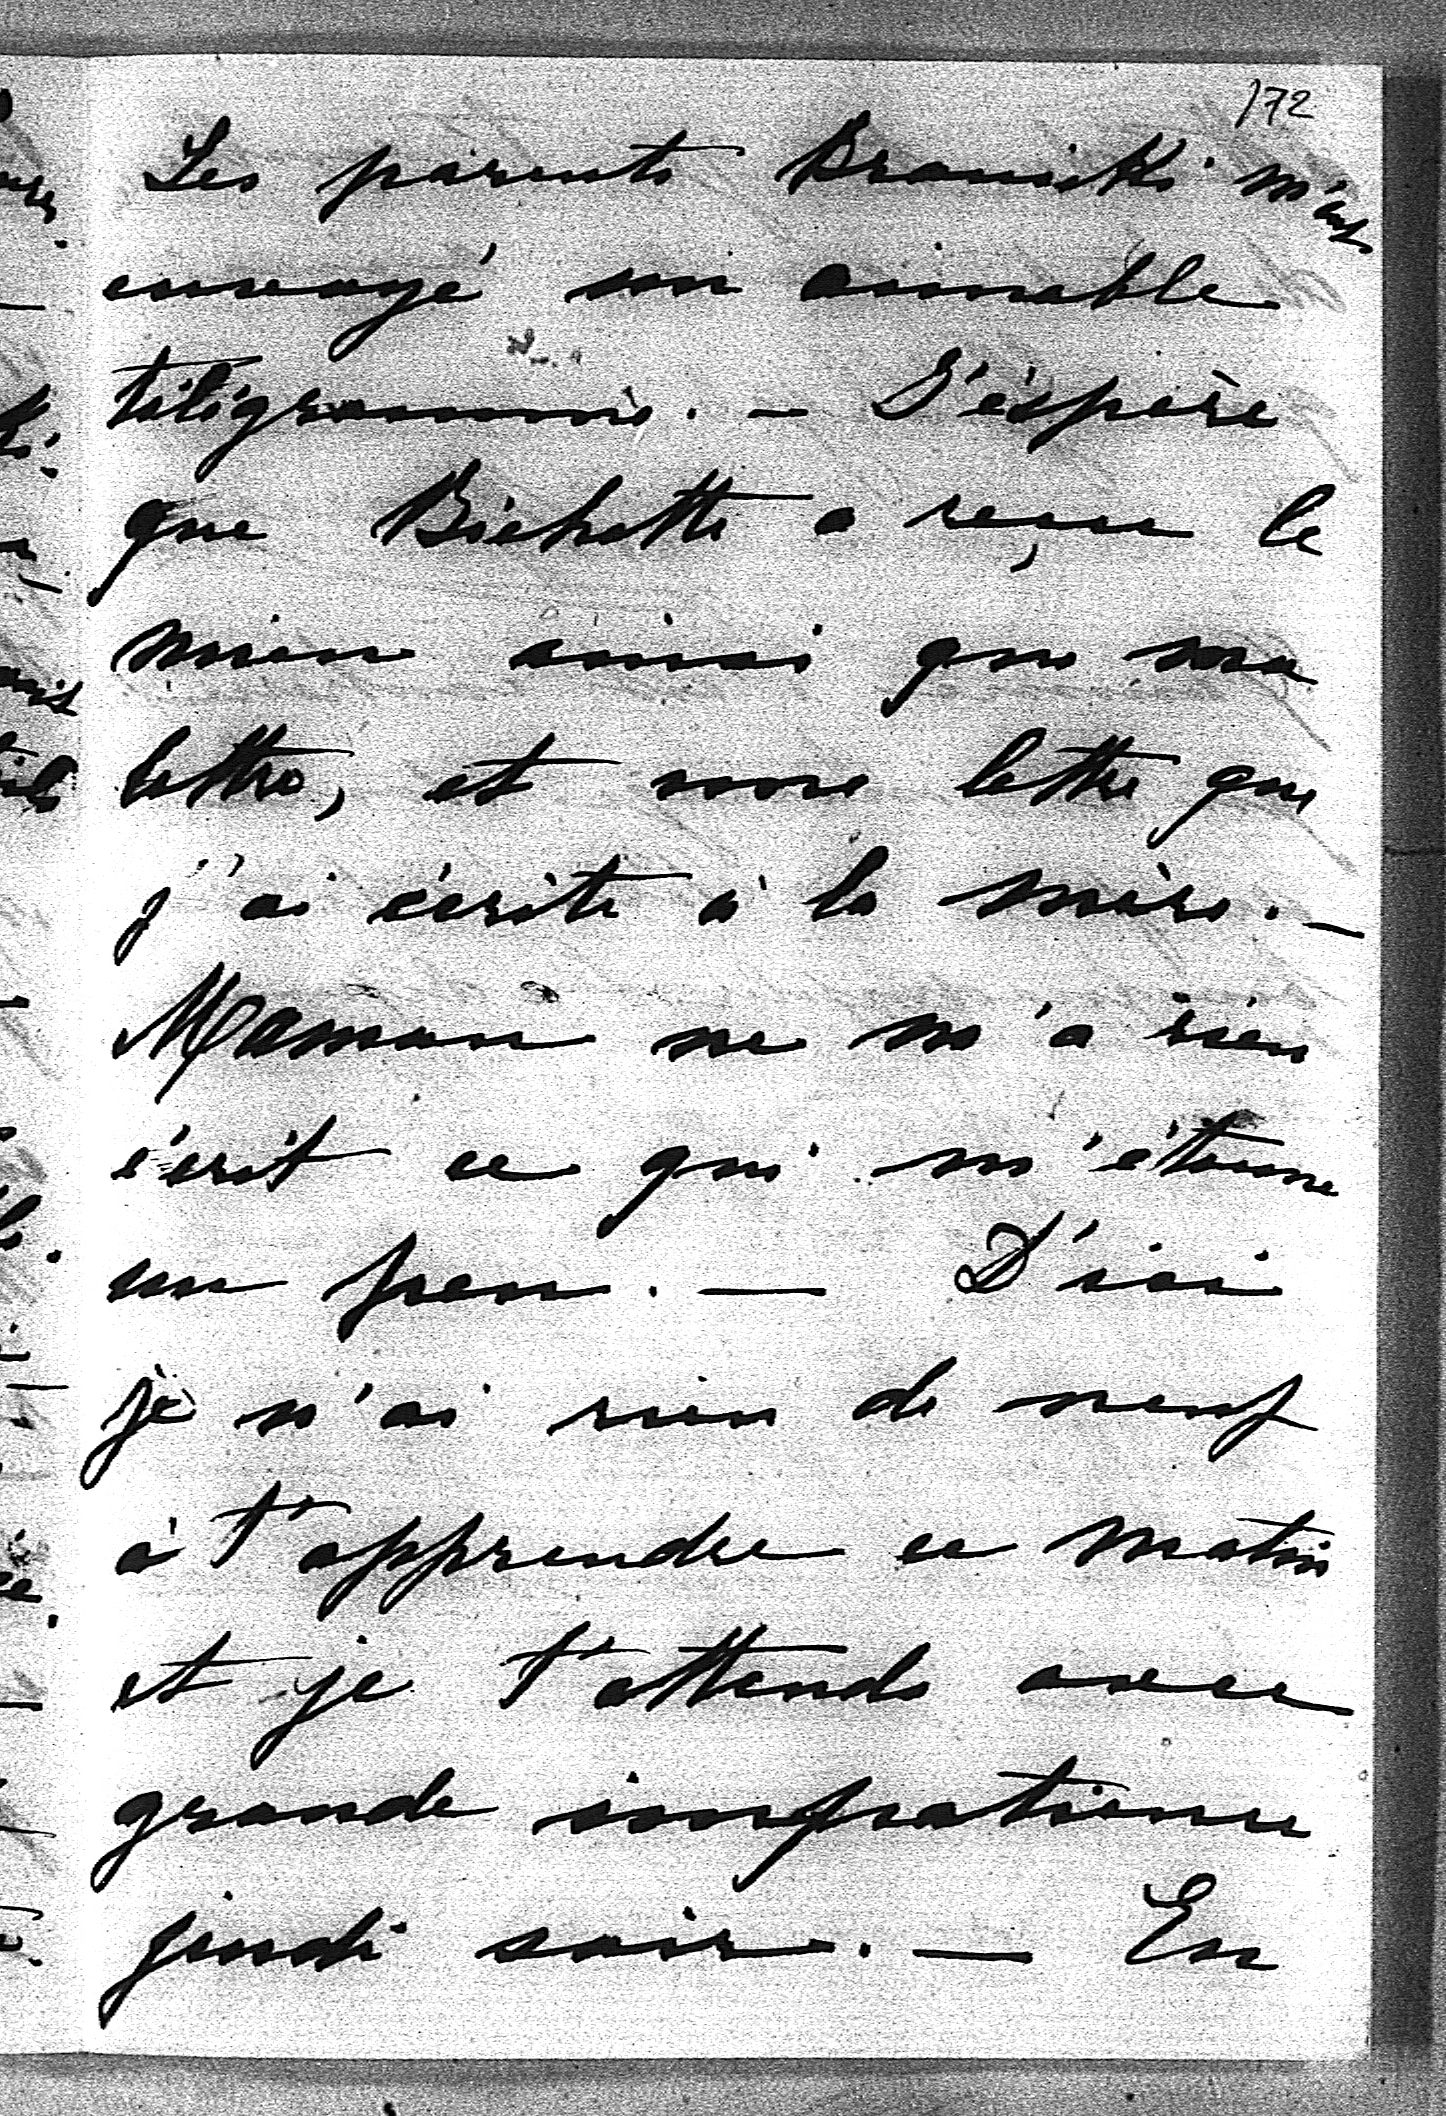 172
Les parents Branicki m'ont
envoyé un aimable
télégramme. — J'éspère
que Bichette a reçu le
mien ainsi que ma
lettre, et une lettre que
j'ai écrite à la mère. —
Maman ne m'a rien
écrit ce qui m'étonne
un peu. — D'ici
je n'ai rien de neuf
à t'apprendre ce matin
et je t'attends avec
grande impatience
jeudi soir. — En